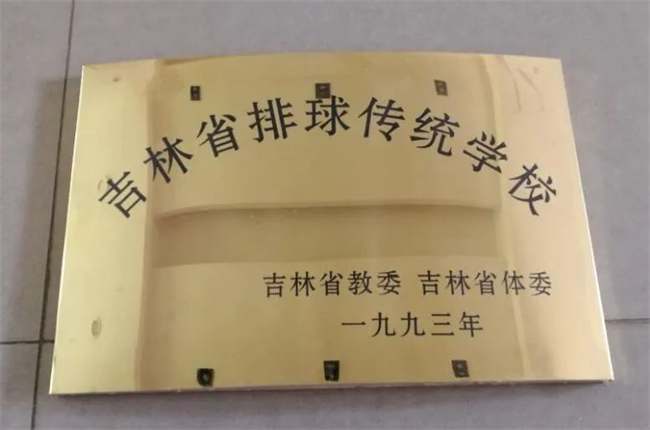 吉林省排球传统学校
吉林省教委 吉林省体委
一九九三年